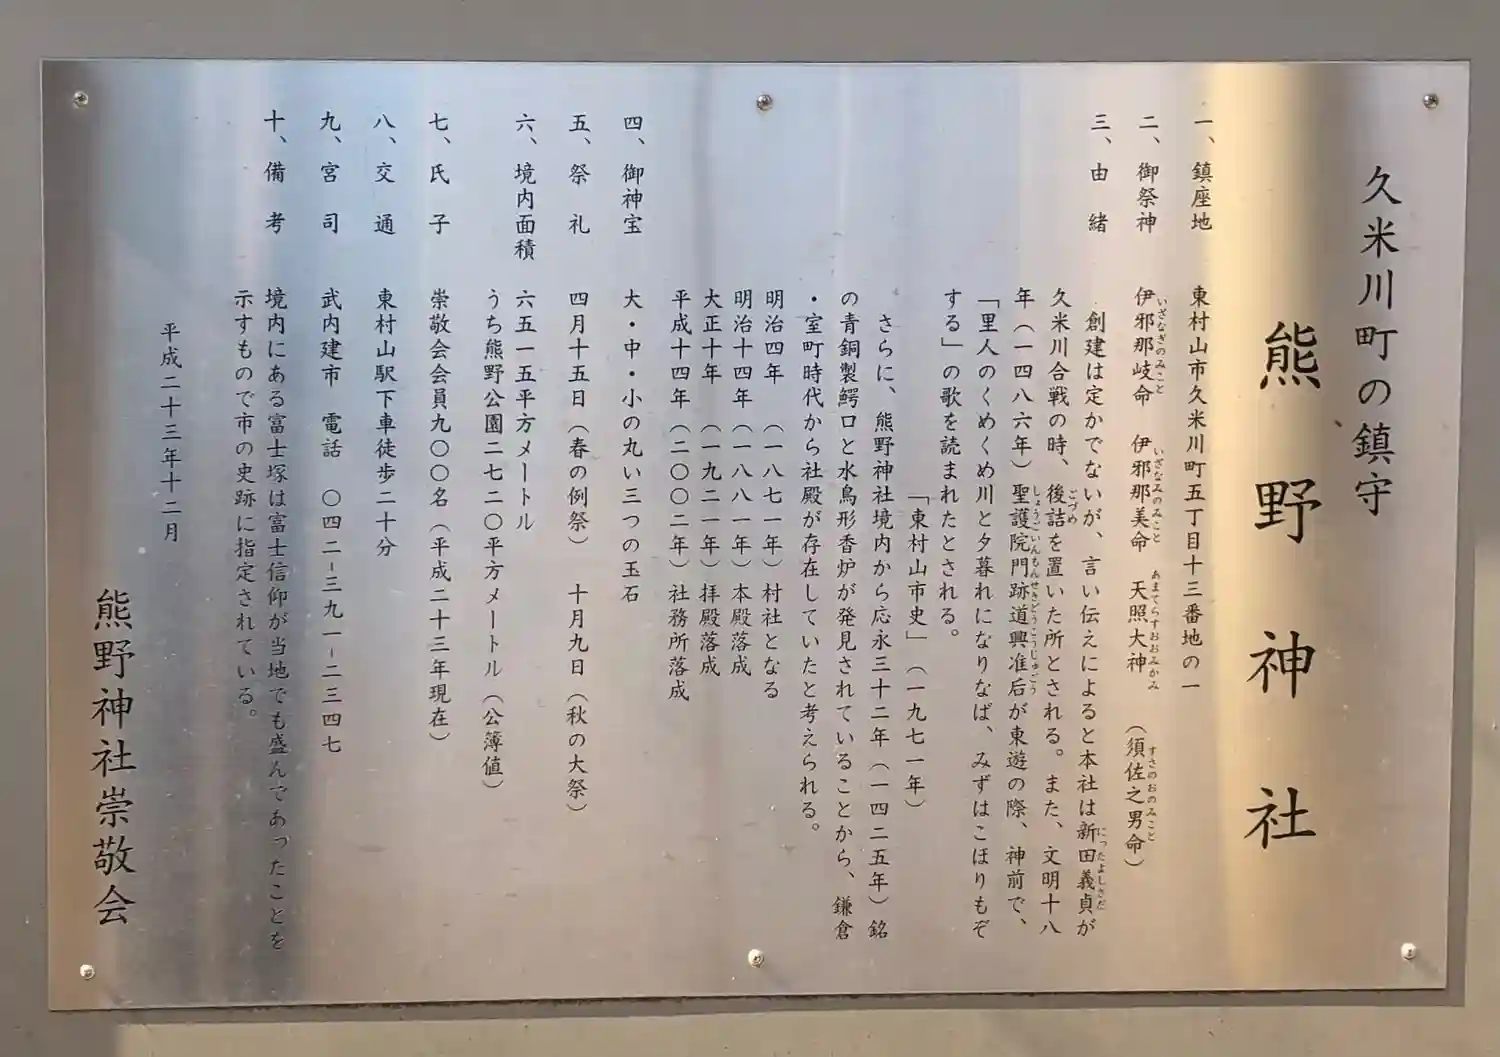 久米川町の鎮守
熊野神社
一、鎮座地 東村山市久米川町五丁目十三番地の一
二、御祭神 伊邪那岐命 伊邪那美命 天照大神 (須佐之男命)
いざなぎのみこと いざなみのみこと あまてらすおおみかみ すさのおのみこと
三、由緒 創建は定かでないが、言い伝えによると本社は新田義貞が
にったよしさだ
久米川合戦の時、後詰を置いた所とされる。また、文明十八
ごづめ
年(一四八六年)聖護院門跡道興准后が東遊の際、神前で、
しょうごいんもんせきどうこうじゅごう
「里人のくめくくめ川と夕暮れになりなば、みずはこほりもぞ
する」の歌を読まれたとされる。
「東村山市史」(一九七一年)
さらに、熊野神社境内から応永三十二年(一四二五年)銘
の青銅製鰐口と水鳥形香炉が発見されていることから、鎌倉
・室町時代から社殿が存在していたと考えられる。
明治四年 (一八七一年)村社となる
明治十四年(一八八一年)本殿落成
大正十年 (一九二一年)拝殿落成
平成十四年(二〇〇二年)社務所落成
四、御神宝 大・中・小の丸い三つの玉石
五、祭礼 四月十五日(春の例祭) 十月九日(秋の大祭)
六、境内面積 六五一五平方メートル
うち熊野公園二七二〇平方メートル(公簿値)
七、氏子 崇敬会会員九〇〇名(平成二十三年現在)
八、交通 東村山駅下車徒歩二十分
九、宮司 武内建市 電話 〇四二-三九一-二三四七
十、備考 境内にある富士塚は富士信仰が当地でも盛んであったことを
示すもので市の史跡に指定されている。
平成二十三年十二月
熊野神社崇敬会